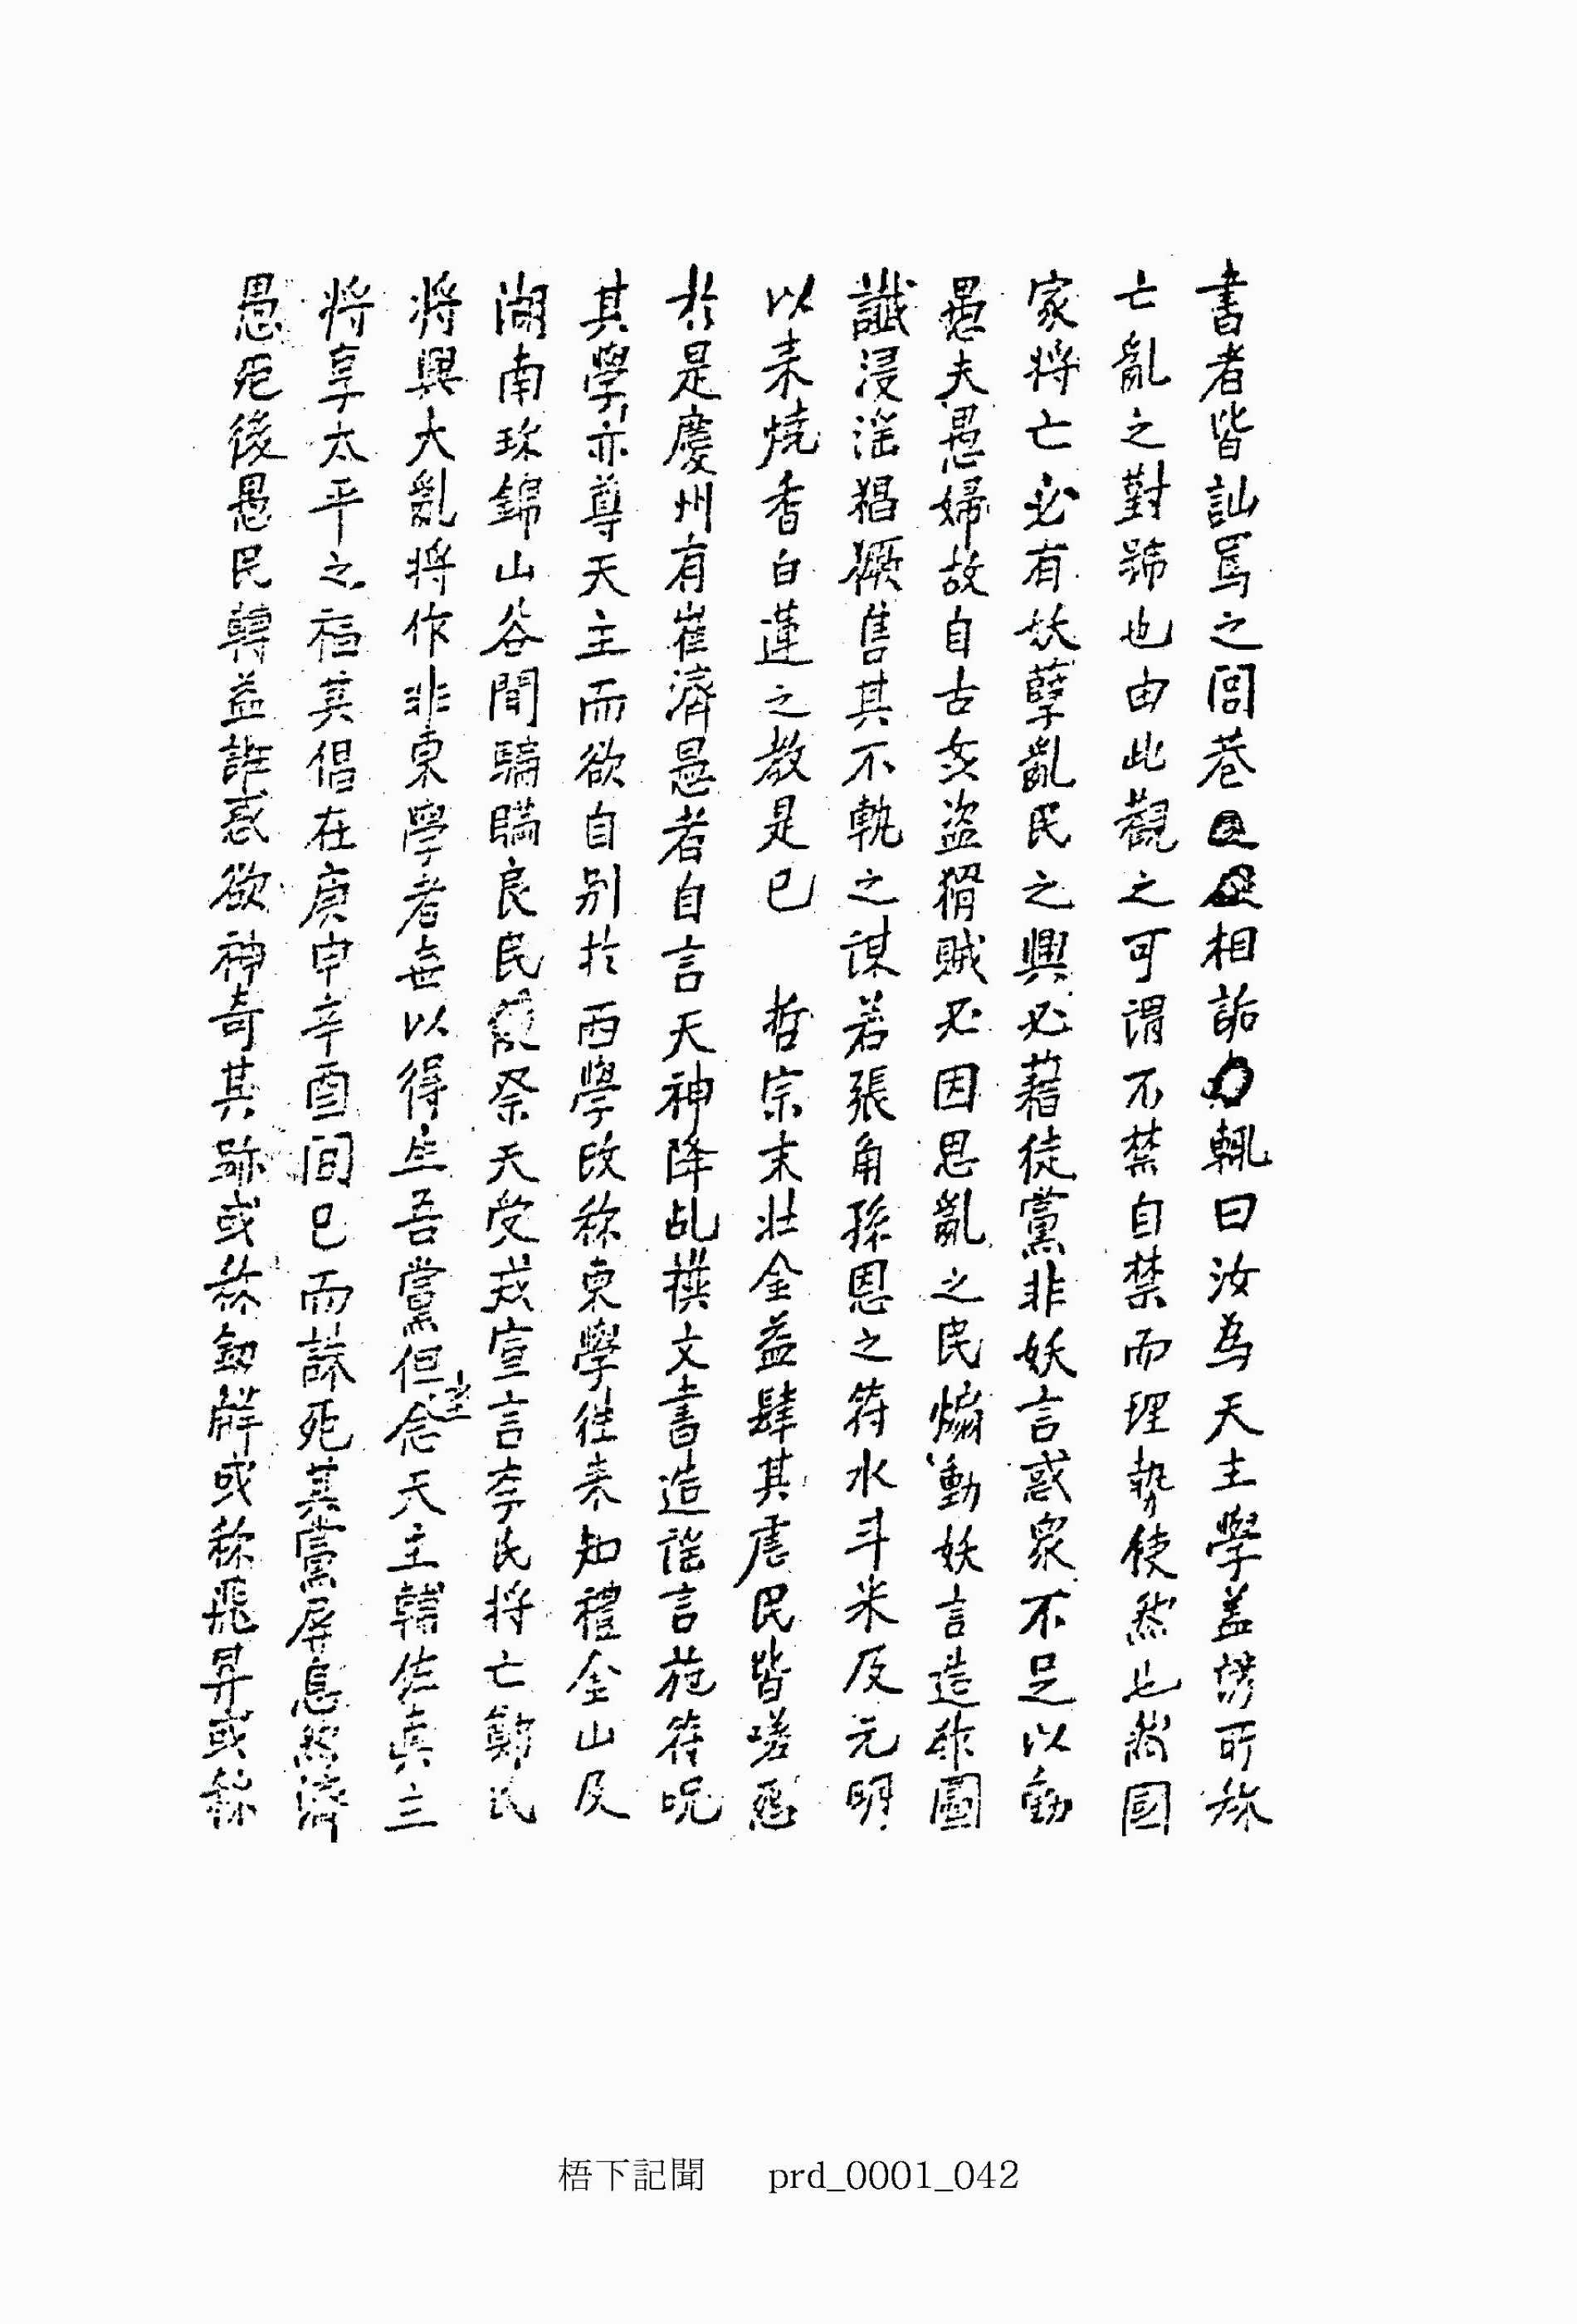 書者皆訕罵之閭巷相詬輒曰汝爲天主學盖謗所称
亡亂之對號也由此觀之可謂不禁自禁而理勢使然也然國
家將亡必有妖孽亂民之興必藉徒黨非妖言惑衆不足以動
愚夫愚婦故自古劇盜猾賊必因思亂之民煽動妖言造作圖
讖浸淫猖獗售其不軌之謀若張角孫恩之符水斗米及元明
以来燒香白蓮之敎是已 哲宗末壯金益肆其虐民皆嗟怨
於是慶州有崔濟愚者自言天神降乩撰文書造謠言施符呪
其學亦尊天主而欲自別於西學改称東學往来知禮金山及
湖南珎錦山谷間騙瞞良民祭天受戒宣言李氏將亡鄭氏
將興大亂將作非東學者無以得生吾黨但坐念天主輔佐眞主
將享太平之福其倡在庚申辛酉间已而誅死其黨屛息然濟
愚死後愚民轉益誑惑欲神奇其跡或称劒觧或称飛昇或称
梧下記聞 prd_0001_042